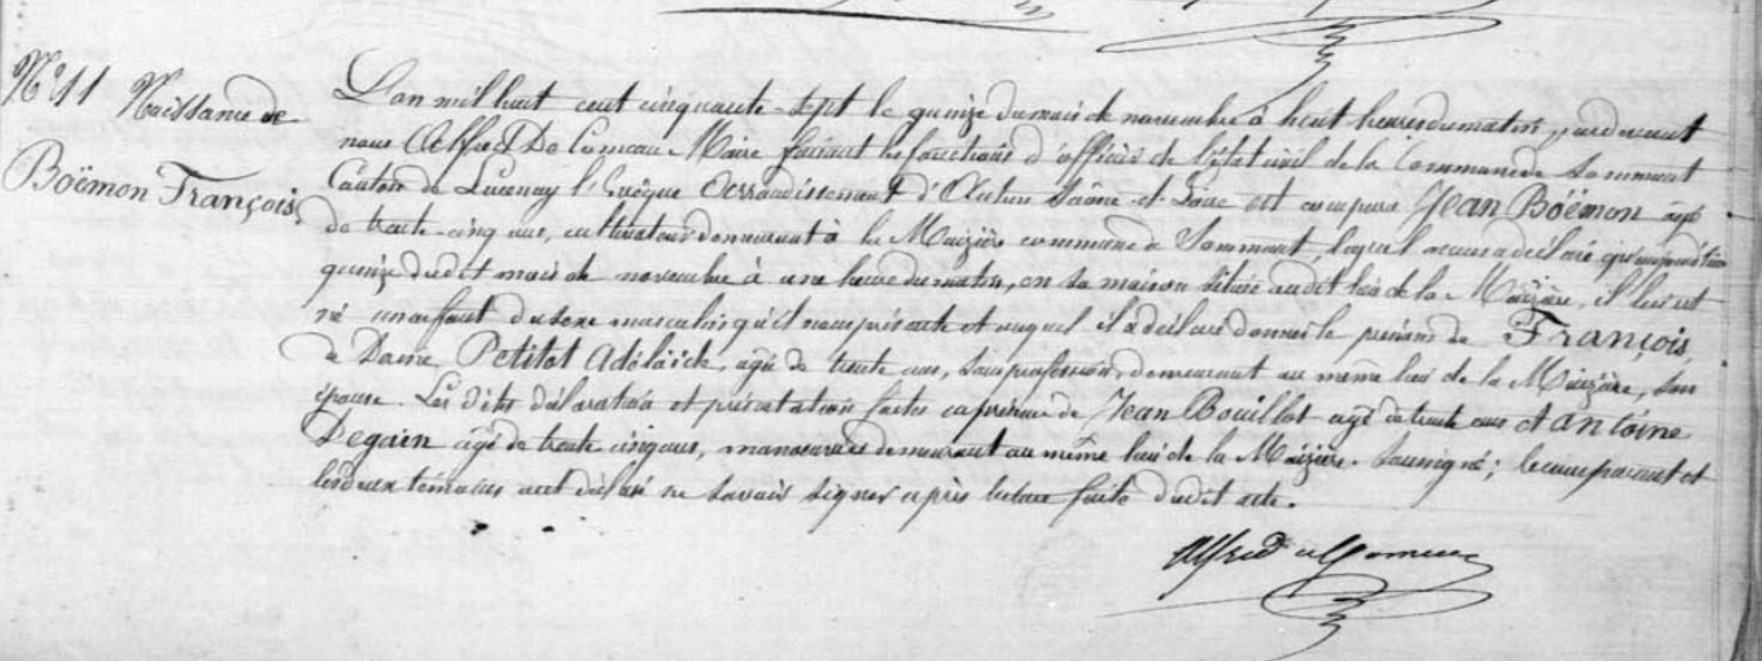 N° 11 Naissance de
Boëmon François.
L'an mil huit cent cinquante-sept le quinze du mois de novembre à huit heures du matin, par devant
nous Alfred De Comeau Maire faisant les fonctions d'officier de l'état civil de la Commune de Sommant
Canton de Lucenay l'Evêque Arrondissement d'Autun Saône-et-Loire est comparu Jean Boëmon agé
de trente-cinq ans, cultivateur demeurant à la Maizière commune de Sommant, lequel nous a déclaré qu'aujourd'hui
quinze dudit mois de novembre à une heure du matin, en sa maison située audit lieu de la Maizière, il lui est
né un enfant du sexe masculin qu'il nous présente et auquel il a déclaré donner le prénom de François
de Dame Petitot Adélaïde, agée de trente ans, sans profession, demeurant au même lieu de la Maizière, son
épouse. Les dites déclaration et présentation faites en présence de Jean Bouillot agé de trente ans et antoine
Degain agé de trente cinq ans, manoeuvres demeurant au même lieu de la Maizière. Soussigné; le comparant et
les deux témoins ont déclaré ne savoir signer après lecture faite dudit acte.
Alfred de Comeau